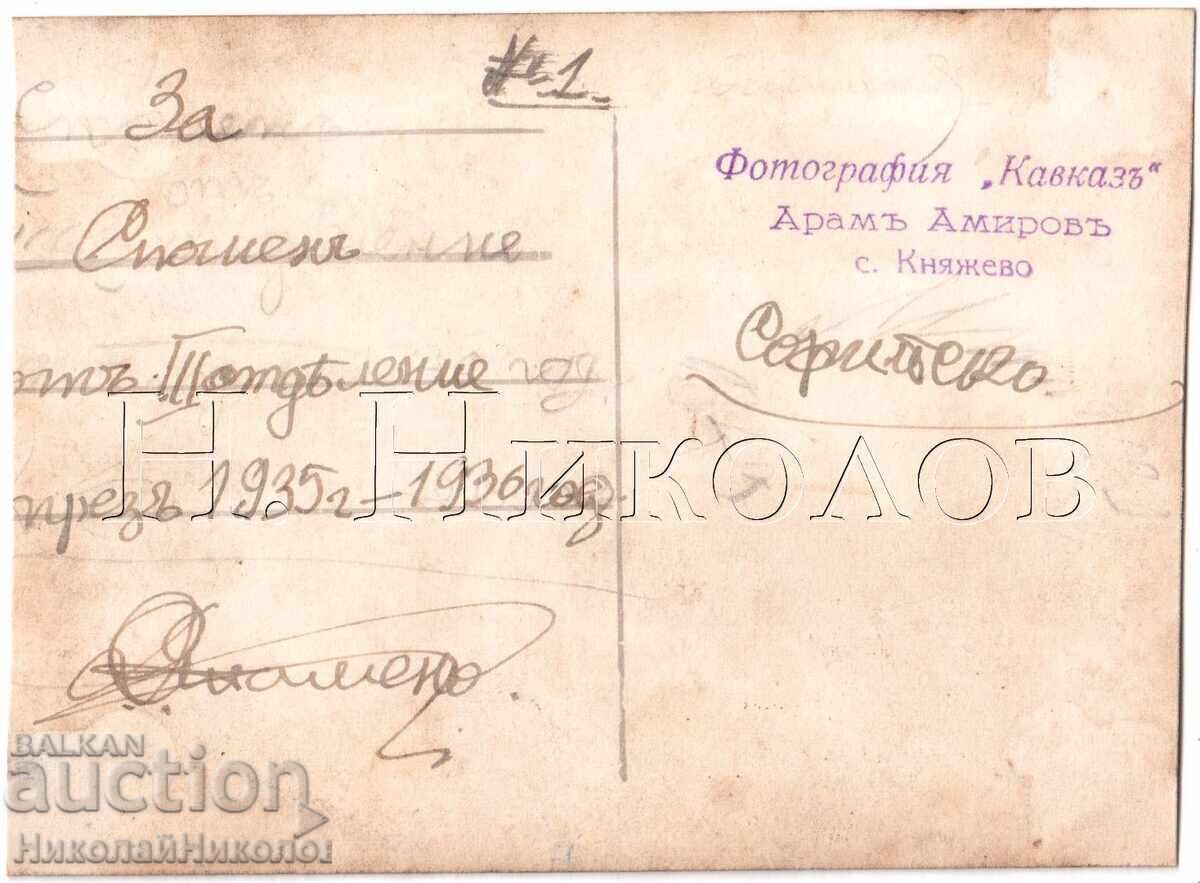 № 1.
За
Спомен
отъ III отдѣление
презъ 1935 г – 1936 год.
Фотография „Кавказъ“
Арамъ Амировъ
с. Княжево
Софийско
Н. Николов
BALKAN
auction
НиколайНиколов